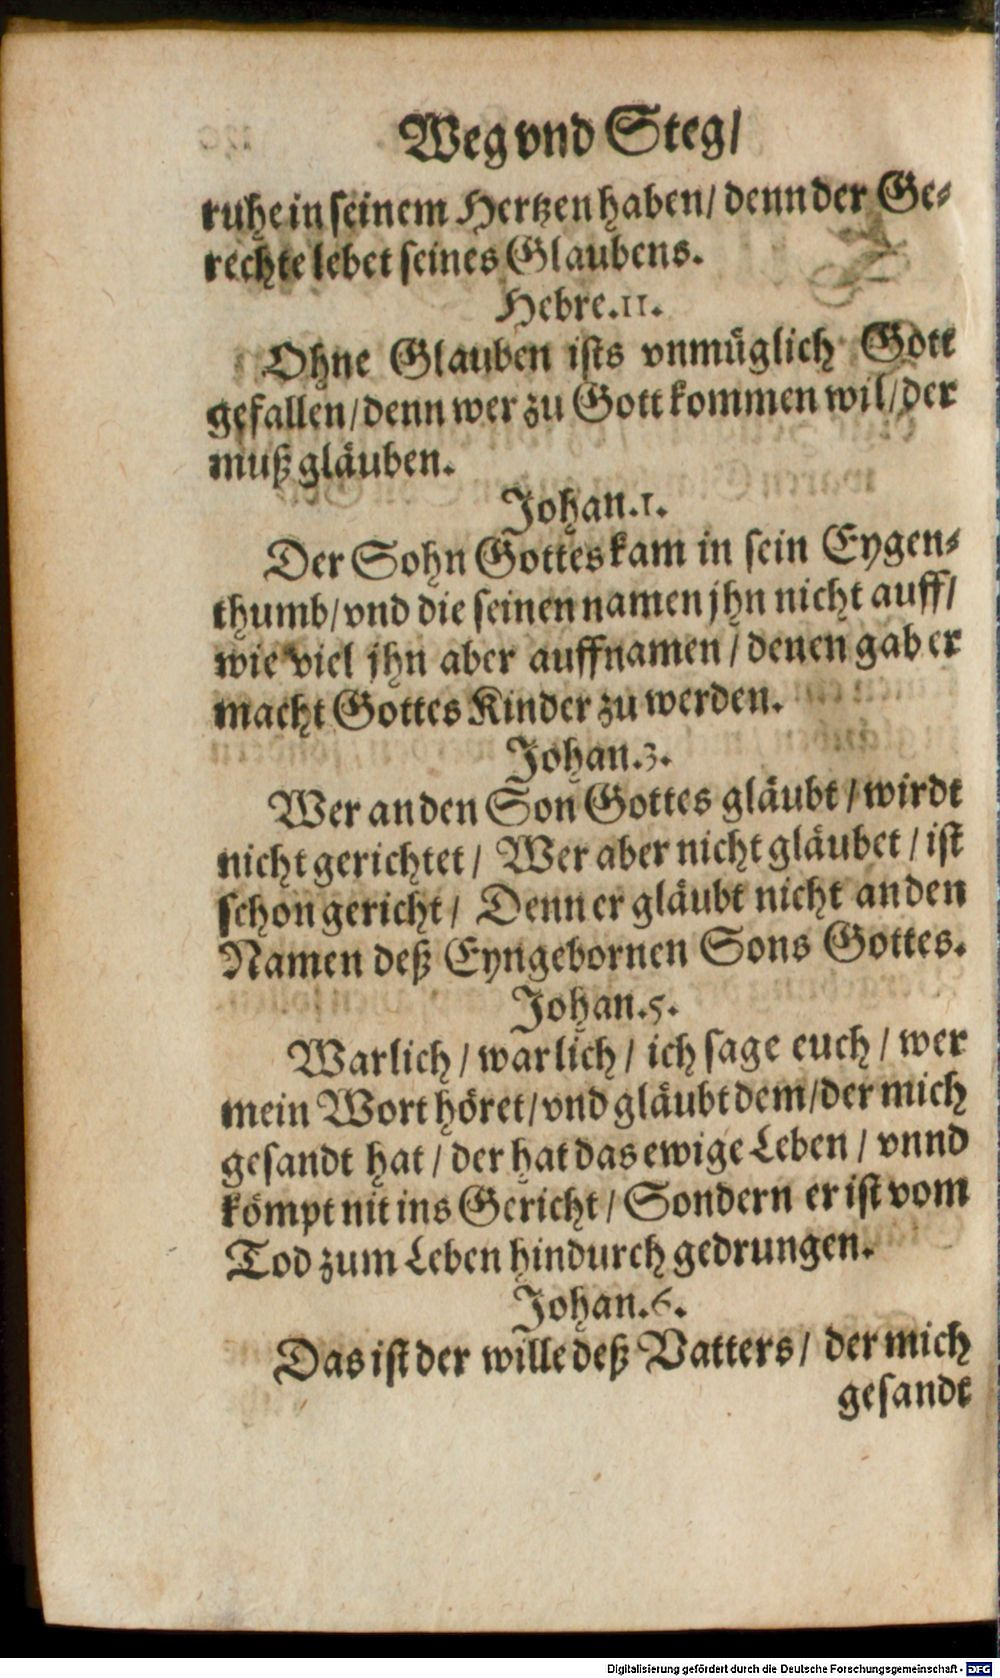 Weg vnd Steg/
ruhe in seinem Hertzen haben/ denn der Ge-
rechte lebet seines Glaubens.
Hebre.11.
Ohne Glauben ists vnmüglich Gott
gefallen/denn wer zu Gott kommen wil/der
muß gläuben.
Johan.1.
Der Sohn Gottes kam in sein Eygen-
thumb/vnd die seinen namen jhn nicht auff/
wie viel jhn aber auffnamen/denen gab er
macht Gottes Kinder zu werden.
Johan.3.
Wer an den Son Gottes gläubt/wirdt
nicht gerichtet/ Wer aber nicht gläubet/ist
schon gericht/ Denn er gläubt nicht an den
Namen deß Eyngebornen Sons Gottes.
Johan.5.
Warlich/warlich/ ich sage euch/wer
mein Wort höret/vnd gläubt dem/der mich
gesandt hat/der hat das ewige Leben/vnnd
kömpt nit ins Gericht/Sondern er ist vom
Tod zum Leben hindurch gedrungen.
Johan.6.
Das ist der wille deß Vatters/ der mich
gesandt
Digitalisierung gefördert durch die Deutsche Forschungsgemeinschaft - DFG